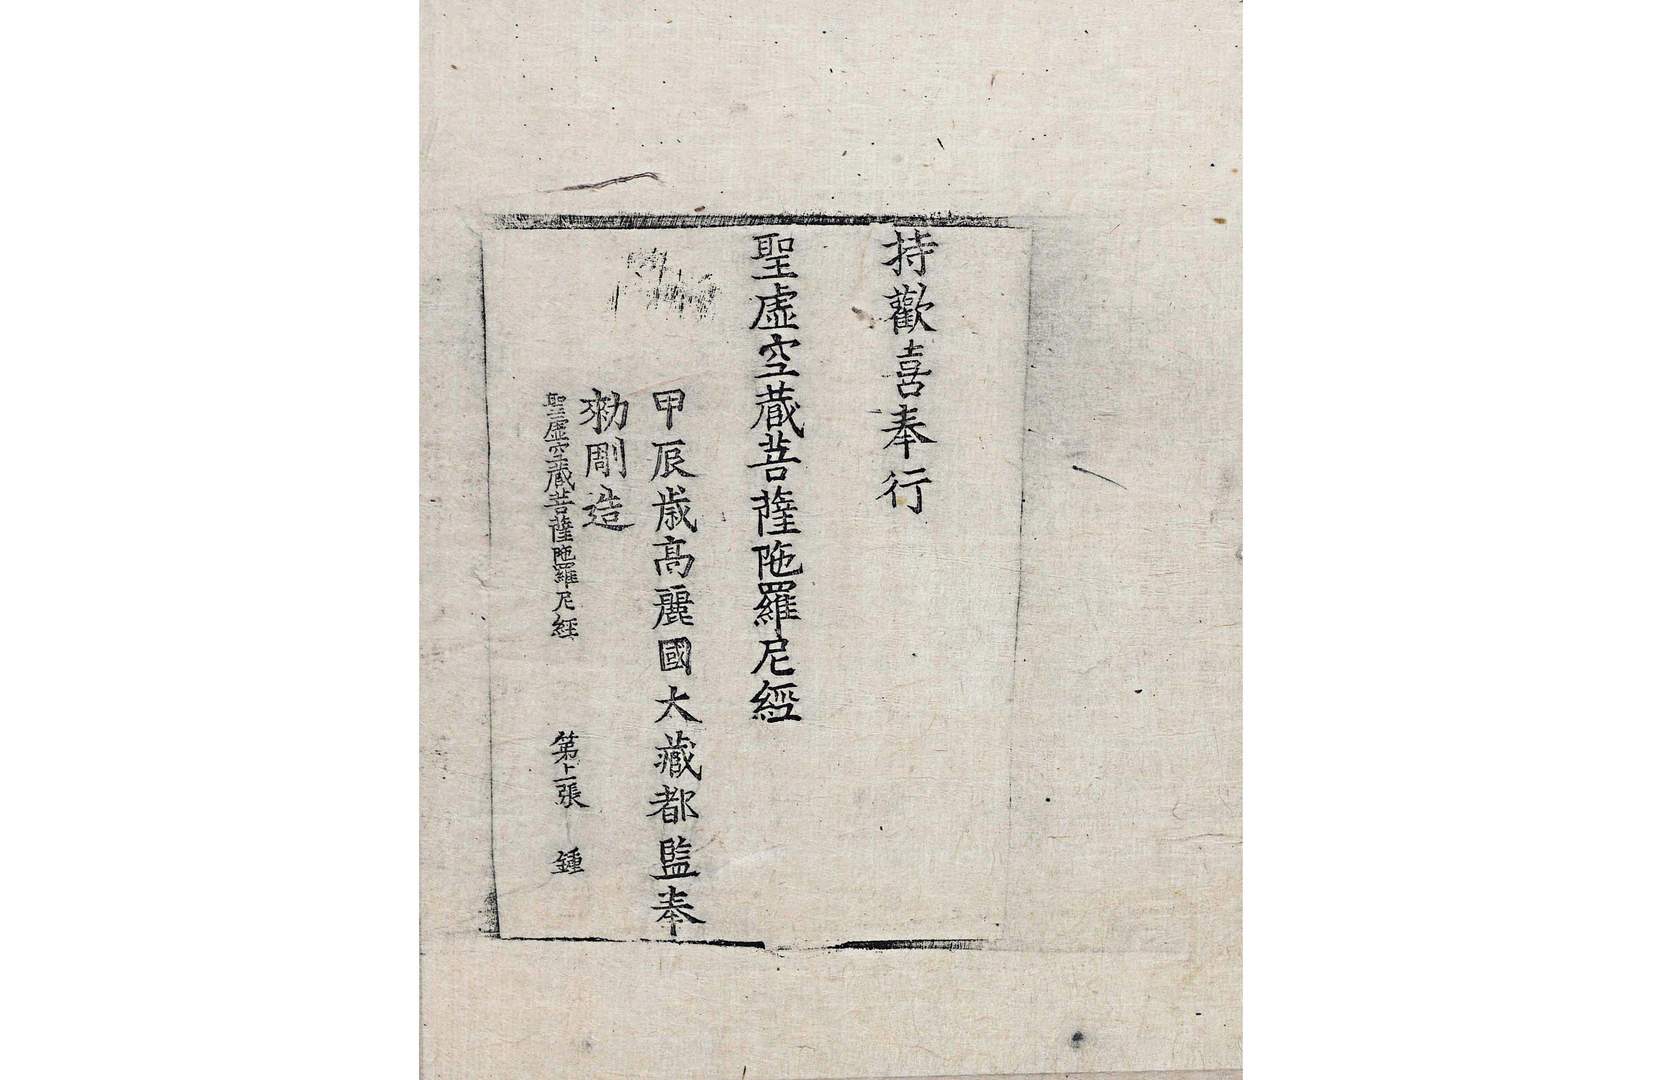 持歡喜奉行
聖虛空藏菩薩陁羅尼經
甲辰歲高麗國大藏都監奉
勑彫造
聖虛空藏菩薩陁羅尼經 第 張 鍾